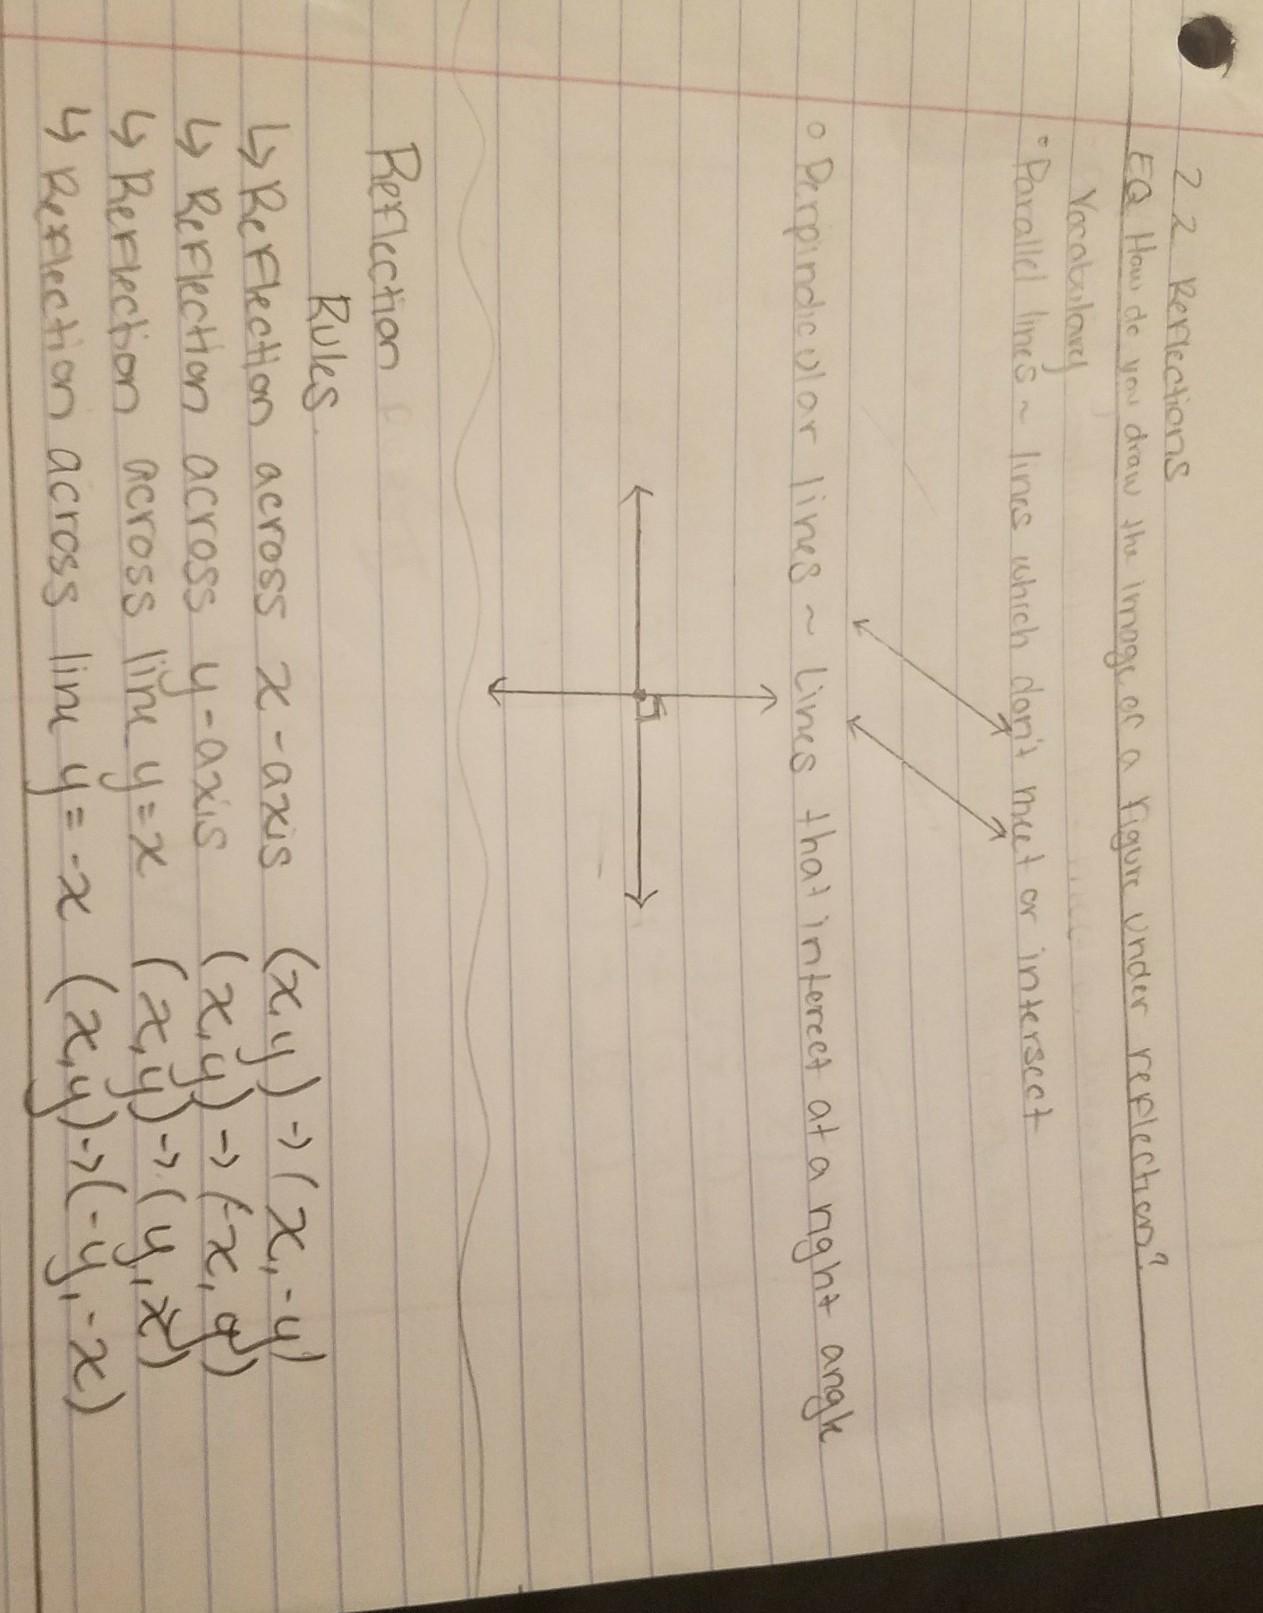 2.2 Reflections
EQ How do you draw the image of a figure under reflection?
Vocabulary
• Parallel lines ~ lines which don't meet or intersect
o Perpindicular lines ~ Lines that interect at a right angle
Reflection
Rules.
↳ Reflection across x-axis (x,y) -> (x,-y)
↳ Reflection across y-axis (x,y) -> (-x,y)
↳ Reflection across line y=x (x,y) -> (y,x)
↳ Reflection across line y=-x (x,y) -> (-y,-x)